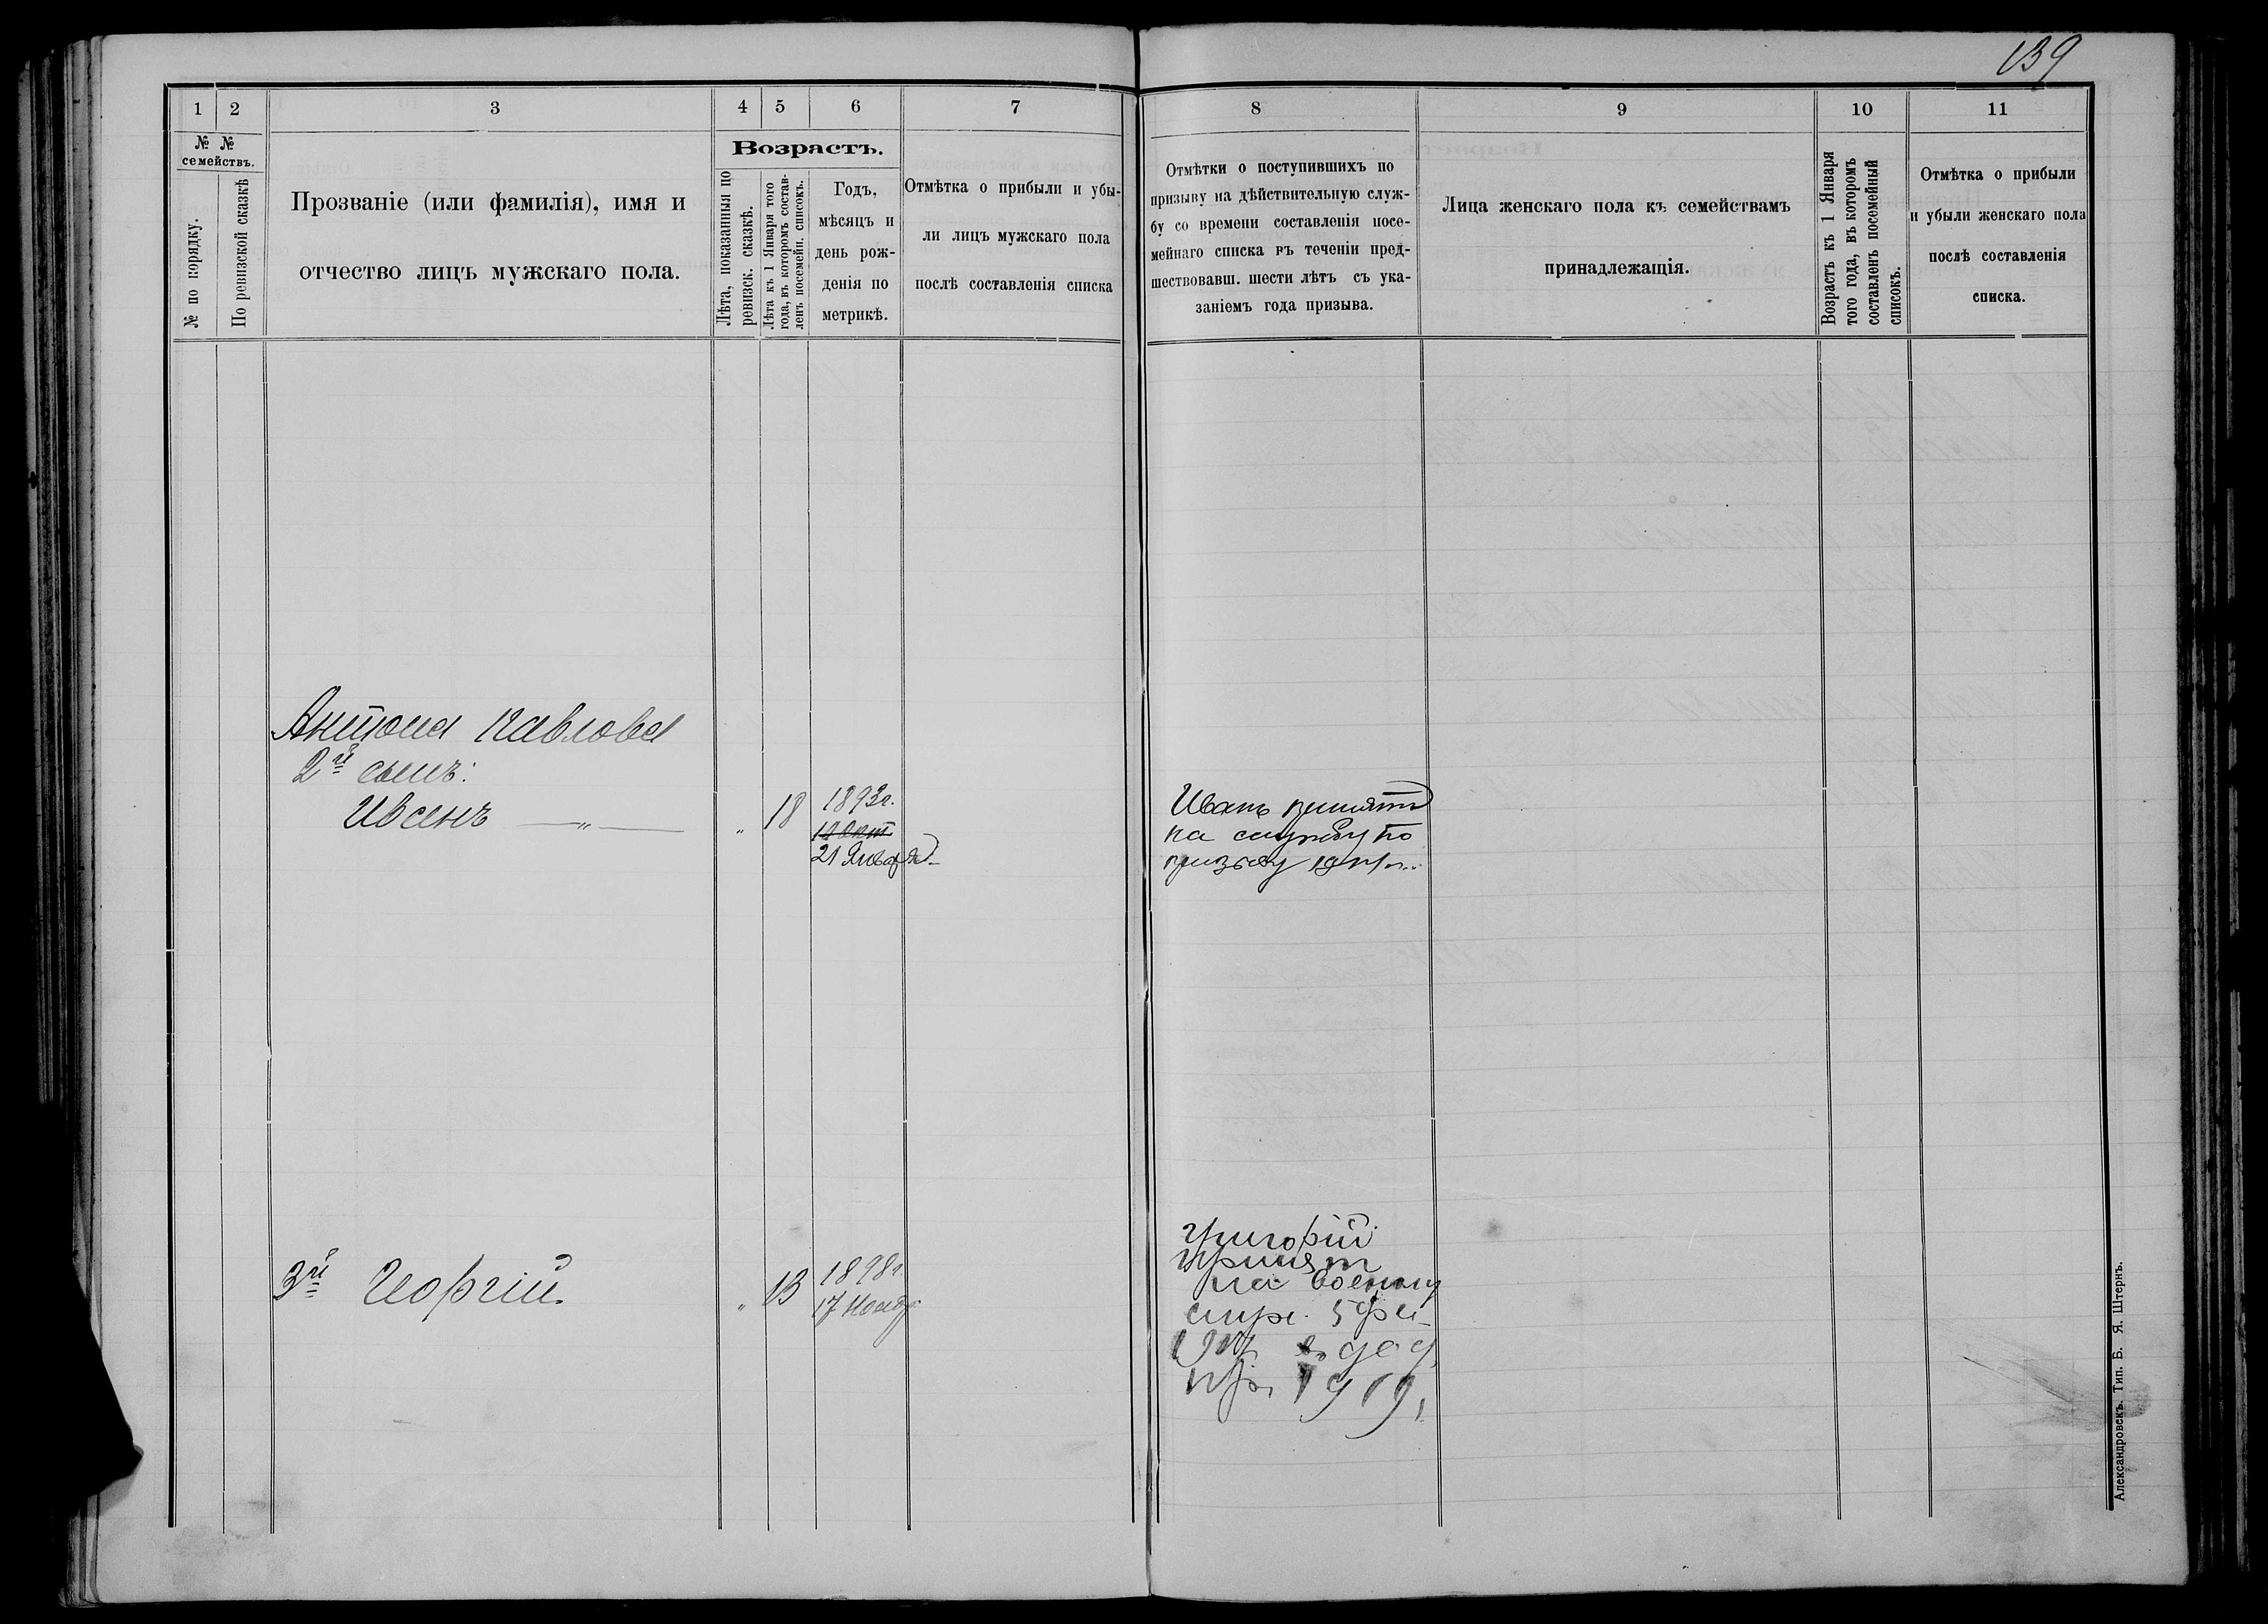 139
1 2 3 4 5 6 7
№ № семействъ.
№ по порядку.
По ревизской сказкѣ
Прозваніе (или фамилія), имя и
отчество лицъ мужскаго пола.
Возрастъ.
Лѣта, показанныя по
ревизск. сказкѣ.
Лѣта къ 1 Января того
года, въ которомъ состав-
ленъ посемейн. списокъ.
Годъ,
мѣсяцъ и
день рож-
денія по
метрикѣ.
Отмѣтка о прибыли и убы-
ли лицъ мужскаго пола
послѣ составленія списка
Антона Павлова
2й сынъ:
Иванъ — „ — „ 18 1893г.
14 Окт
21 Января
3й Георгій. „ 13 1898г.
17 Ноябр.
8 9 10 11
Отмѣтки о поступившихъ по
призыву на дѣйствительную служ-
бу со времени составленія посе-
мейнаго списка въ теченіи пред-
шествовавш. шести лѣтъ съ ука-
заніемъ года призыва.
Лица женскаго пола къ семействамъ
принадлежащія.
Возрастъ къ 1 Января
того года, въ которомъ
составленъ посемейный
списокъ.
Отмѣтка о прибыли
и убыли женскаго пола
послѣ составленія
списка.
Иванъ принятъ
на службу по
призыву
Григорій
принят
на военную
служ. 5 фев
1919.
Александровскъ. Тип. Б. Я. Штернъ.